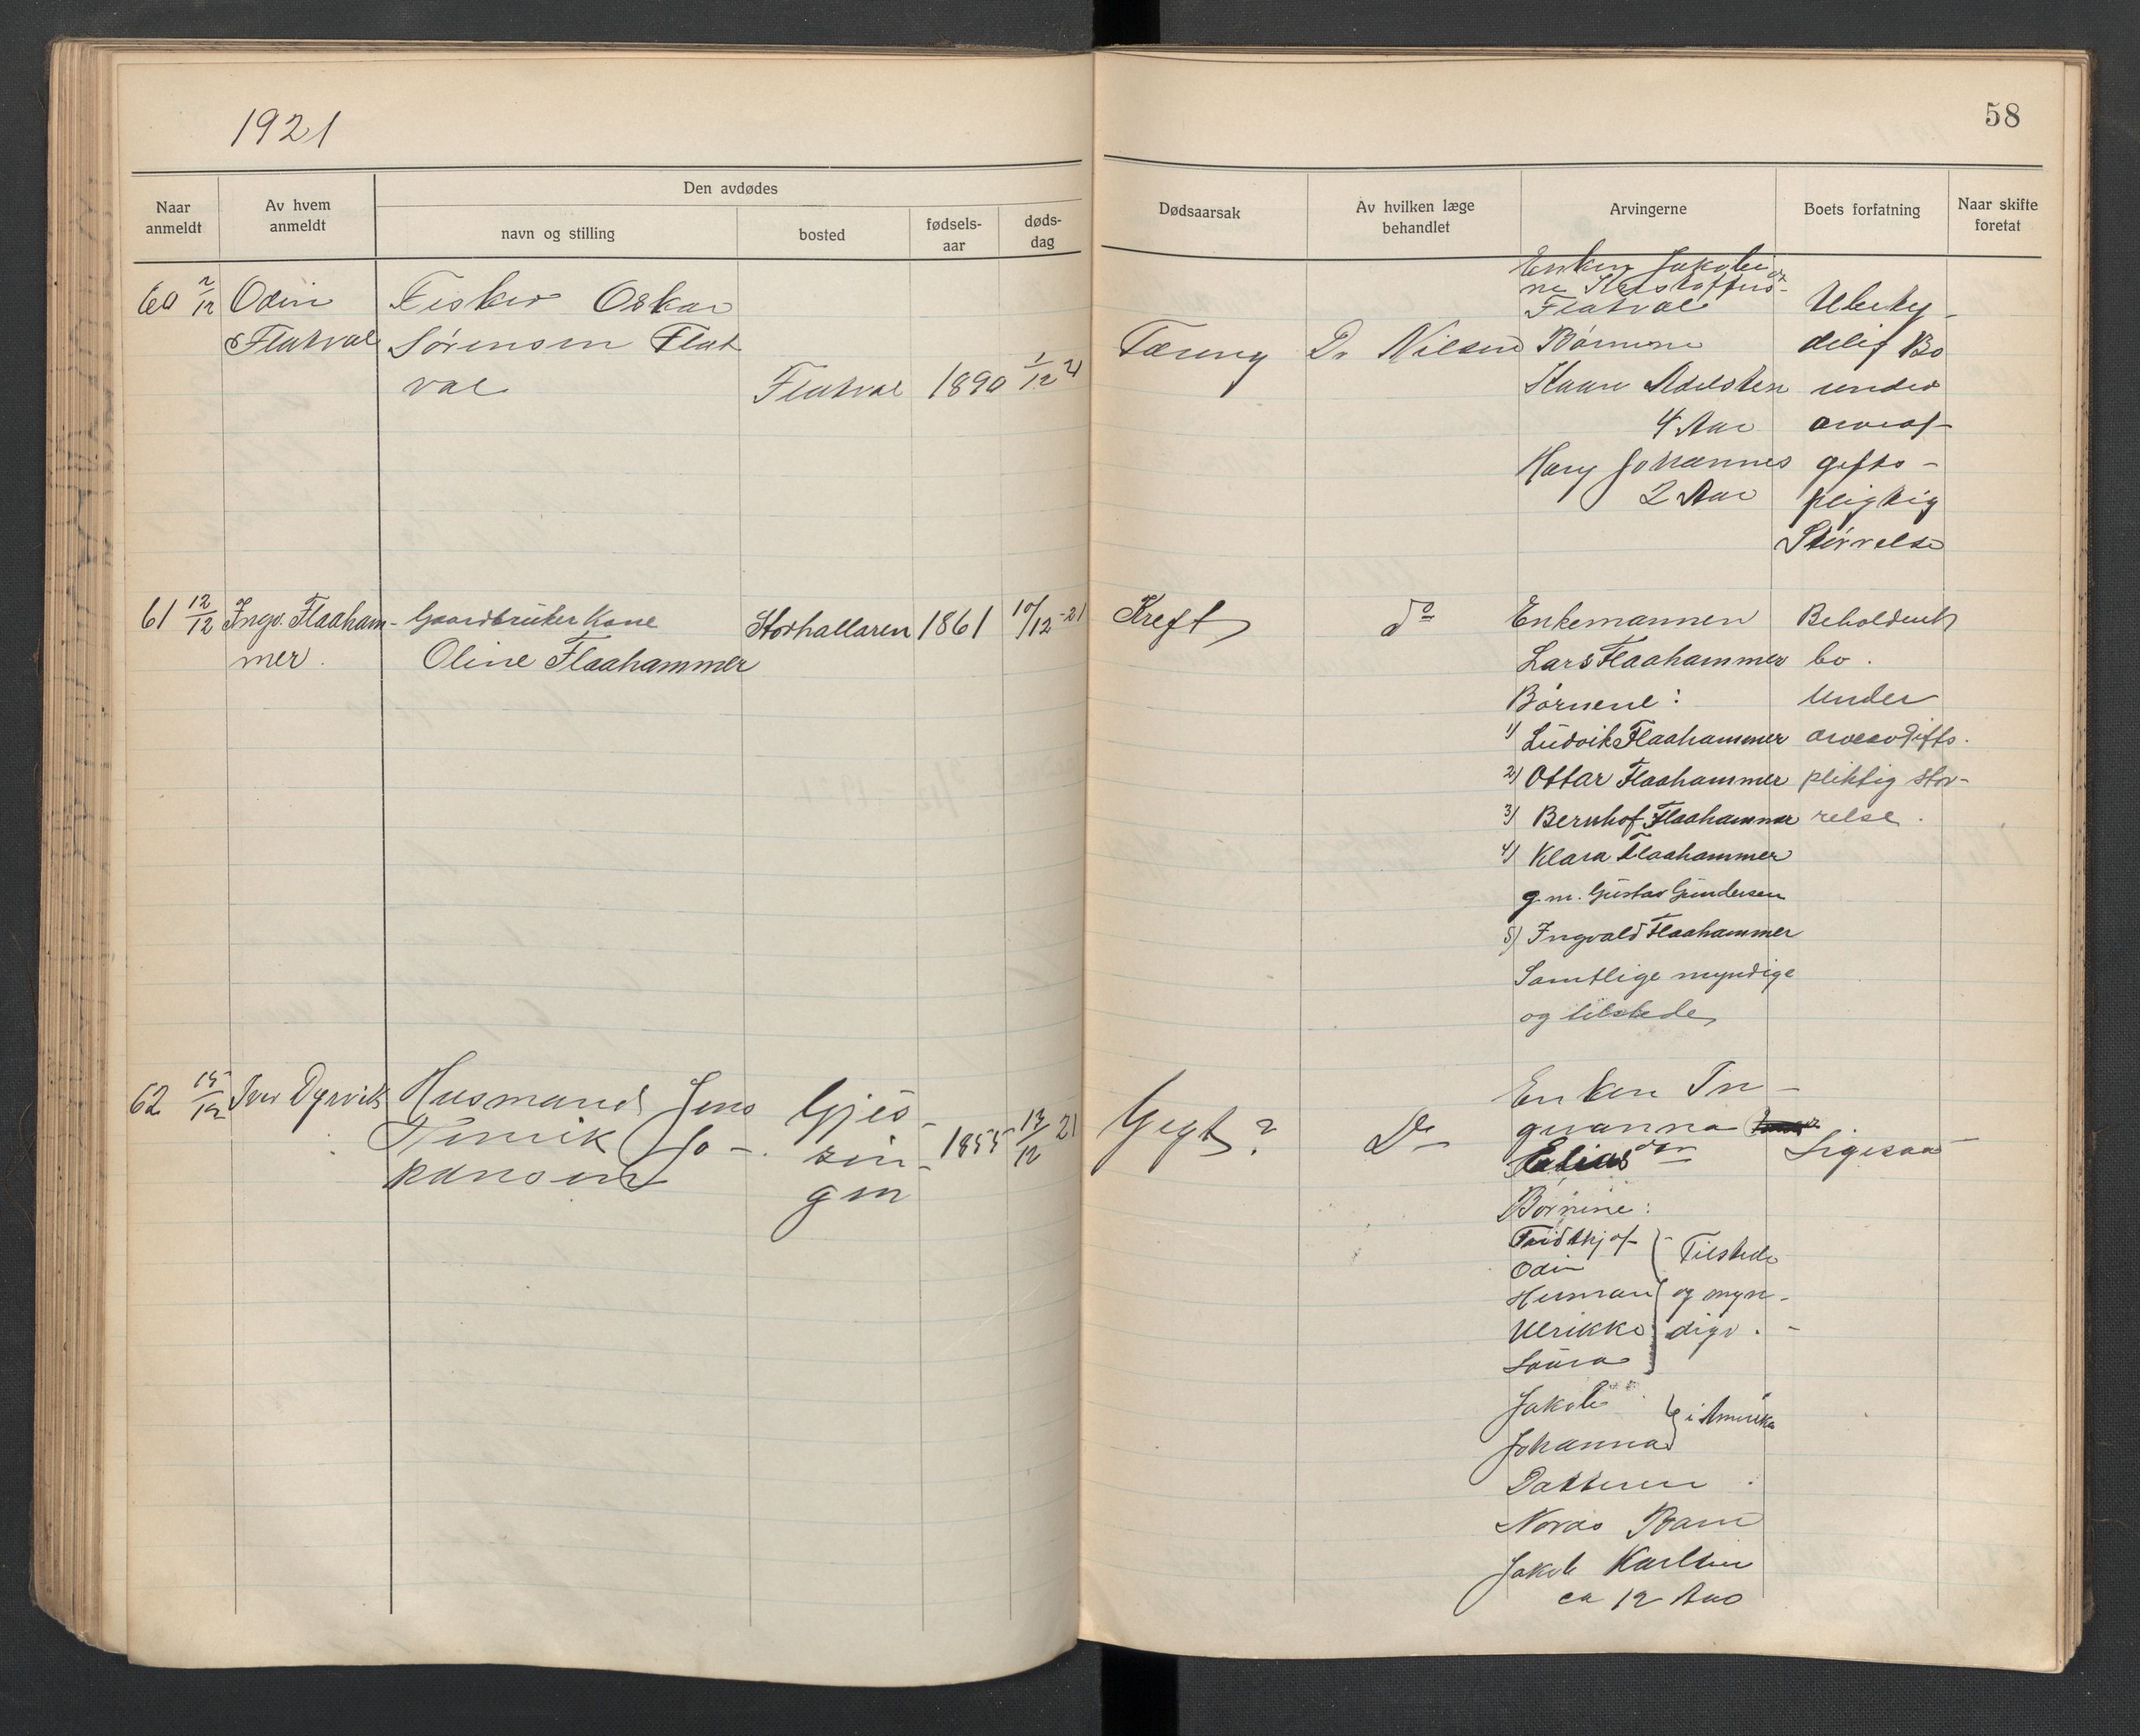 1921
58
Den avdødes
Naar anmeldt
Av hvem anmeldt
navn og stilling
bosted
fødsels-aar
døds-dag
Dødsaarsak
Av hvilken læge behandlet
Arvingerne
Boets forfatning
Naar skifte foretat
60 2/12 Odin
Flatval
Fisker Oskar
Sørensen Flat
val
Flatval 1890 1/12 21
Tæring Dr Nilsen
Enken Jakobi
ne Kristoffers
Flatval
Børnene
Kaare Adelsten
4 Aar
Harry Johannes
2 Aar
Ubety
delig Bo
under
arveaf-
gifts-
pligtig
Størrelse
61 12/12 Ingv. Flaaham-
mer.
Gaardbruker Kone
Oline Flaahammer
Storhallaren 1861 10/12-21
Kreft
do
Enkemannen
Lars Flaahammer
Børnene:
1) Ludvik Flaahammer
2) Ottar Flaahammer
3) Bernhof Flaahammer
4) Klara Flaahammer
g.m. Gustav Gundersen
5) Ingvald Flaahammer
Samtlige myndige
og tilstede
Beholdent
bo.
Under
arveavgifts-
pliktig stør-
relse.
62 15/12 Iver Dyrvik
Husmand Jens
Henrik Jo-
hansen
Gjes-
sin-
gen
1855 13/12 21
Gigt?
Do
Enken In-
gvanna
Elias
Børnene:
Fridthjof
Odin
Herman
Ulrikke
Laura
Tilstede
og myn-
dige.
Jakob
Johanna
i Amerika
Datteren
Noras Barn
Jakob Karlsen
ca 12 Aar
Ligesaa